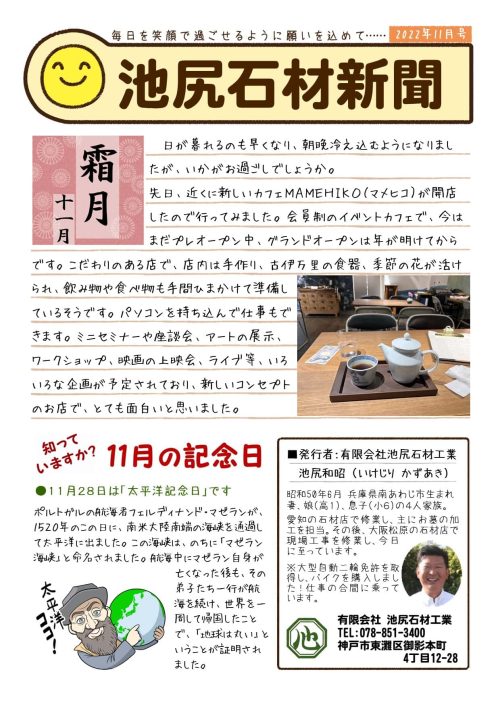 毎日を笑顔で過ごせるように願いを込めて……
2022年11月号
池尻石材新聞
霜月
十一月
日が暮れるのも早くなり、朝晩冷え込むようになりまし
たが、いかがお過ごしでしょうか。
先日、近くに新しいカフェMAMEHIKO(マメヒコ)が開店
したので行ってみました。会員制のイベントカフェで、今は
まだプレオープン中、グランドオープンは年が明けてから
です。こだわりのある店で、店内は手作り、古伊万里の食器、季節の花が活け
られ、飲み物や食べ物も手間ひまかけて準備し
ているそうです。パソコンを持ち込んで仕事もで
きます。ミニセミナーや座談会、アートの展示、
ワークショップ、映画の上映会、ライブ等、いろ
いろな企画が予定されており、新しいコンセプト
のお店で、とても面白いと思いました。
知って
いますか?
11月の記念日
●11月28日は「太平洋記念日」です
ポルトガルの航海者フェルディナンド・マゼランが、
1520年のこの日に、南米大陸南端の海峡を通過し
て太平洋に出ました。この海峡は、のちに「マゼラン
海峡」と命名されました。航海中にマゼラン自身が
亡くなった後も、その
弟子たち一行が航
海を続け、世界を一
周して帰国したこと
で、「地球は丸い」と
いうことが証明され
ました。
太平洋
ココ!
■発行者:有限会社池尻石材工業
池尻和昭 (いけじり かずあき)
昭和50年6月 兵庫県南あわじ市生まれ
妻、娘(高1)、息子(小6)の4人家族。
愛知の石材店で修業し、主にお墓の加
工を担当。その後、大阪松原の石材店で
現場工事を修業し、今日
に至っています。
※大型自動二輪免許を取
得し、バイクを購入しまし
た!仕事の合間に乗って
います。
池
有限会社 池尻石材工業
TEL:078-851-3400
神戸市東灘区御影本町
4丁目12-28